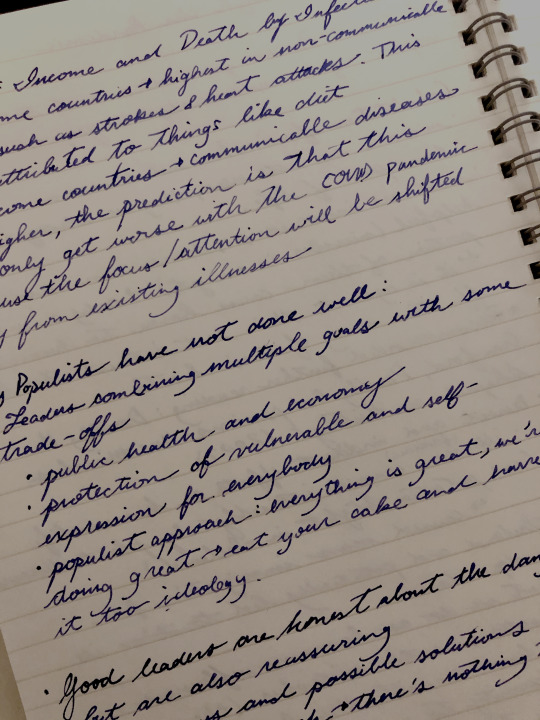 Income and Death by Infec
me countries → highest in non-communicable
such as strokes & heart attacks. This
attributed to things like diet
come countries → communicable diseases
igher, the prediction is that this
only get worse with the COVID pandemic
use the focus/attention will be shifted
y from existing illnesses
Populists have not done well:
Leaders combining multiple goals with some
trade-offs
• public health and economy
• protection of vulnerable and self-
expression for everybody
• populist approach: everything is great, we'r
doing great → eat your cake and have
it too ideology.
• Good leaders are honest about the dan
but are also reassuring
s and possible solutions
→ there's nothing